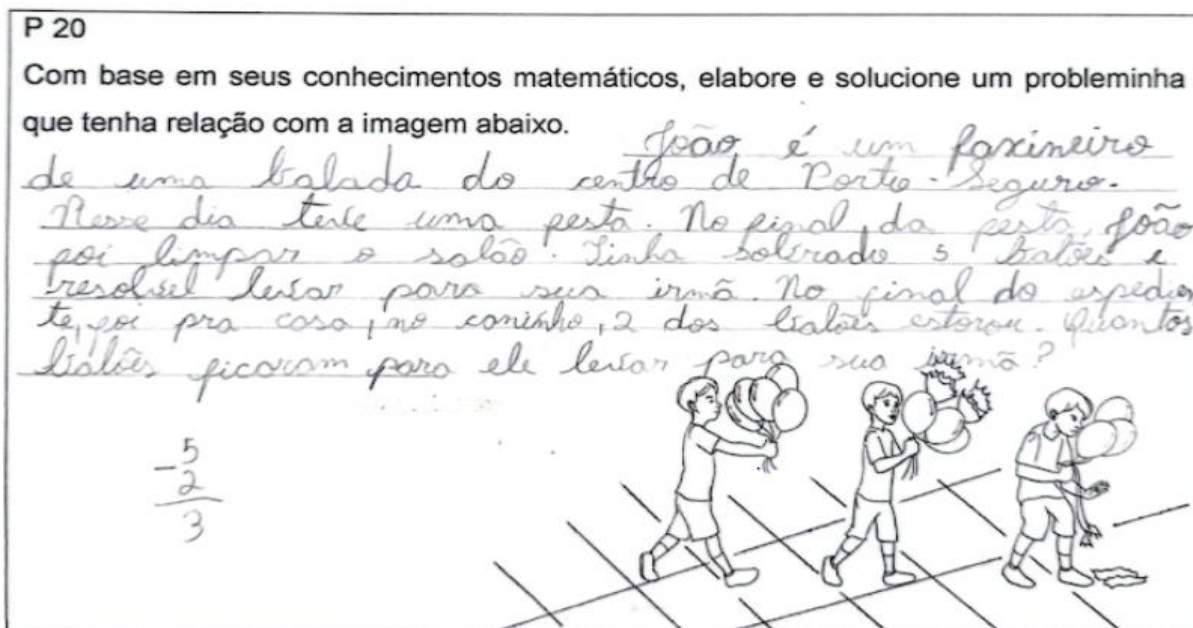 P 20
Com base em seus conhecimentos matemáticos, elabore e solucione um probleminha
que tenha relação com a imagem abaixo.
João é um faxineiro
de uma balada do centro de Porto-Seguro.
Nesse dia teve uma festa. No final da festa, João
foi limpar o salão. Tinha sobrado 5 balões e
resolvel levar para sua irmã. No final do espedien
te, foi pra casa, no caminho, 2 dos balões estorou. Quantos
balões ficaram para ele levar para sua irmã?
5
- 2
3